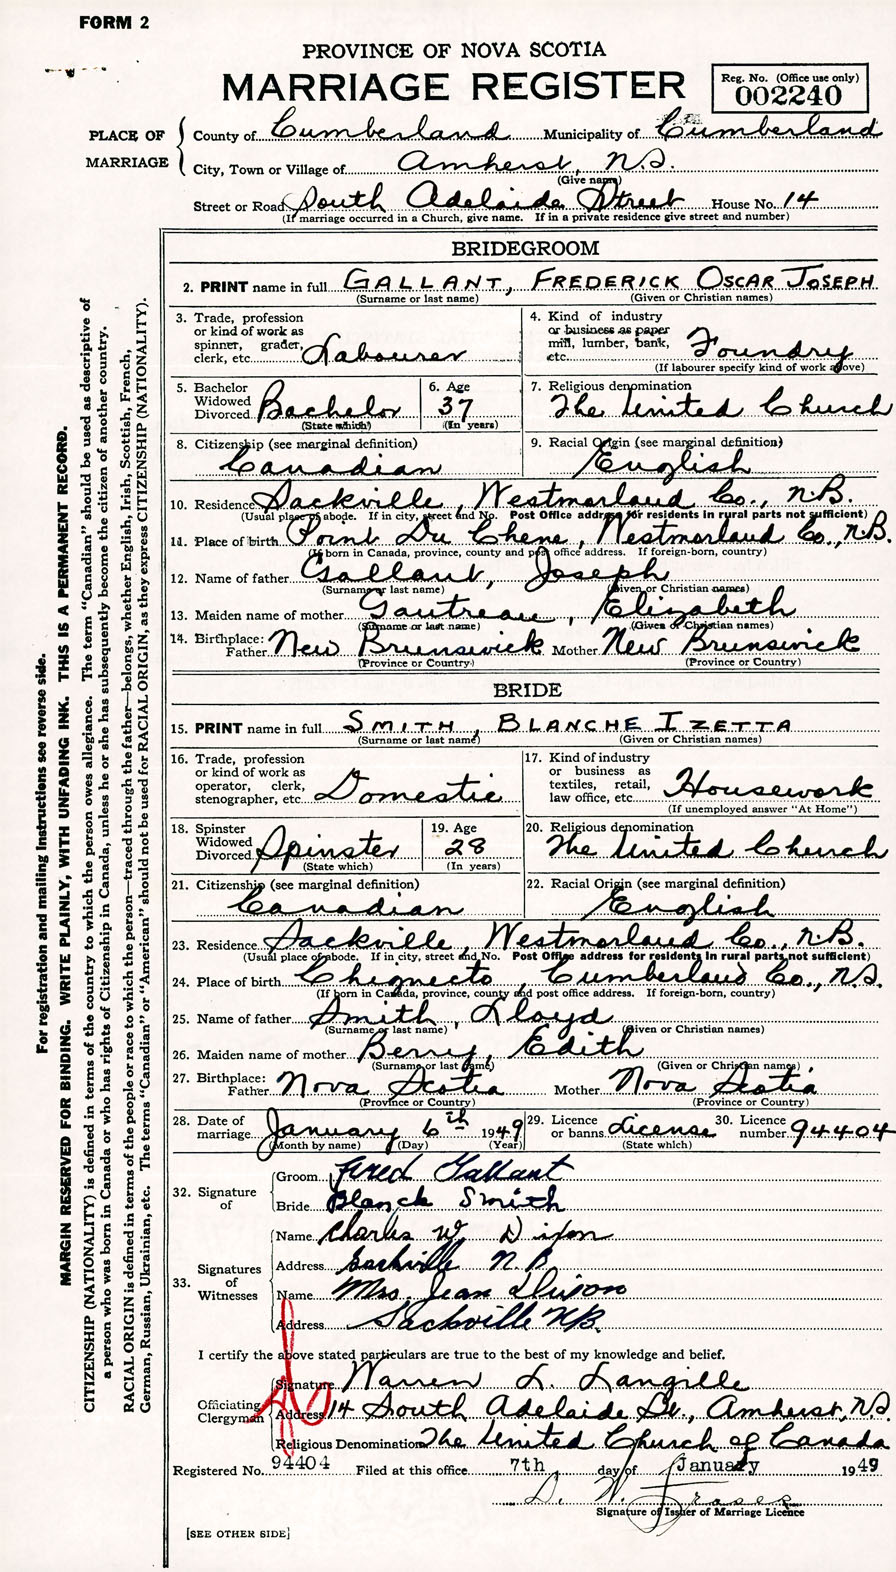 FORM 2
PROVINCE OF NOVA SCOTIA
MARRIAGE REGISTER
Reg. No. (Office use only)
002240
PLACE OF MARRIAGE
County of Cumberland Municipality of Cumberland
City, Town or Village of Amherst, N.S.
(Give name)
Street or Road South Adelaide Street House No. 14
(If marriage occurred in a Church, give name. If in a private residence give street and number)
BRIDEGROOM
2. PRINT name in full GALLANT, FREDERICK OSCAR JOSEPH
(Surname or last name) (Given or Christian names)
3. Trade, profession
or kind of work as
spinner, grader,
clerk, etc. Labourer
4. Kind of industry
or business as paper
mill, lumber, bank,
etc. Foundry
(If labourer specify kind of work above)
5. Bachelor
Widowed
Divorced Bachelor
(State which)
6. Age
37
(In years)
7. Religious denomination
The United Church
8. Citizenship (see marginal definition)
Canadian
9. Racial Origin (see marginal definition)
English
10. Residence Sackville, Westmorland Co., N.B.
(Usual place of abode. If in city, street and No. Post Office address for residents in rural parts not sufficient)
11. Place of birth Point Du Chene, Westmorland Co., N.B.
(If born in Canada, province, county and post office address. If foreign-born, country)
12. Name of father Gallant, Joseph
(Surname or last name) (Given or Christian names)
13. Maiden name of mother Gautreau, Elizabeth
(Surname or last name) (Given or Christian names)
14. Birthplace:
Father New Brunswick Mother New Brunswick
(Province or Country) (Province or Country)
BRIDE
15. PRINT name in full SMITH, BLANCHE IZETTA
(Surname or last name) (Given or Christian names)
16. Trade, profession
or kind of work as
operator, clerk,
stenographer, etc. Domestic
17. Kind of industry
or business as
textiles, retail,
law office, etc. Housework
(If unemployed answer "At Home")
18. Spinster
Widowed
Divorced Spinster
(State which)
19. Age
28
(In years)
20. Religious denomination
The United Church
21. Citizenship (see marginal definition)
Canadian
22. Racial Origin (see marginal definition)
English
23. Residence Sackville, Westmorland Co., N.B.
(Usual place of abode. If in city, street and No. Post Office address for residents in rural parts not sufficient)
24. Place of birth Chignecto, Cumberland Co., N.S.
(If born in Canada, province, county and post office address. If foreign-born, country)
25. Name of father Smith, Lloyd
(Surname or last name) (Given or Christian names)
26. Maiden name of mother Berry, Edith
(Surname or last name) (Given or Christian names)
27. Birthplace:
Father Nova Scotia Mother Nova Scotia
(Province or Country) (Province or Country)
28. Date of
marriage January 6th 1949
(Month by name) (Day) (Year)
29. Licence
or banns License
(State which)
30. Licence
number 94404
32. Signature of
Groom Fred Gallant
Bride Blanck Smith
33. Signatures of Witnesses
Name Charles W. Dixon
Address Sackville N B
Name Mrs. Jean Dixon
Address Sackville N.B.
I certify the above stated particulars are true to the best of my knowledge and belief.
Officiating Clergyman
Signature Warren L. Langille
Address 14 South Adelaide St., Amherst, N.S.
Religious Denomination The United Church of Canada
Registered No. 94404 Filed at this office 7th day of January 1949
D. W. Fraser
Signature of Issuer of Marriage Licence
[SEE OTHER SIDE]
For registration and mailing instructions see reverse side.
MARGIN RESERVED FOR BINDING. WRITE PLAINLY, WITH UNFADING INK. THIS IS A PERMANENT RECORD.
CITIZENSHIP (NATIONALITY) is defined in terms of the country to which the person owes allegiance. The term "Canadian" should be used as descriptive of
a person who was born in Canada or who has rights of Citizenship in Canada, unless he or she has subsequently become the citizen of another country.
RACIAL ORIGIN is defined in terms of the people or race to which the person—traced through the father—belongs, whether English, Irish, Scottish, French,
German, Russian, Ukrainian, etc. The terms "Canadian" or "American" should not be used for RACIAL ORIGIN, as they express CITIZENSHIP (NATIONALITY).